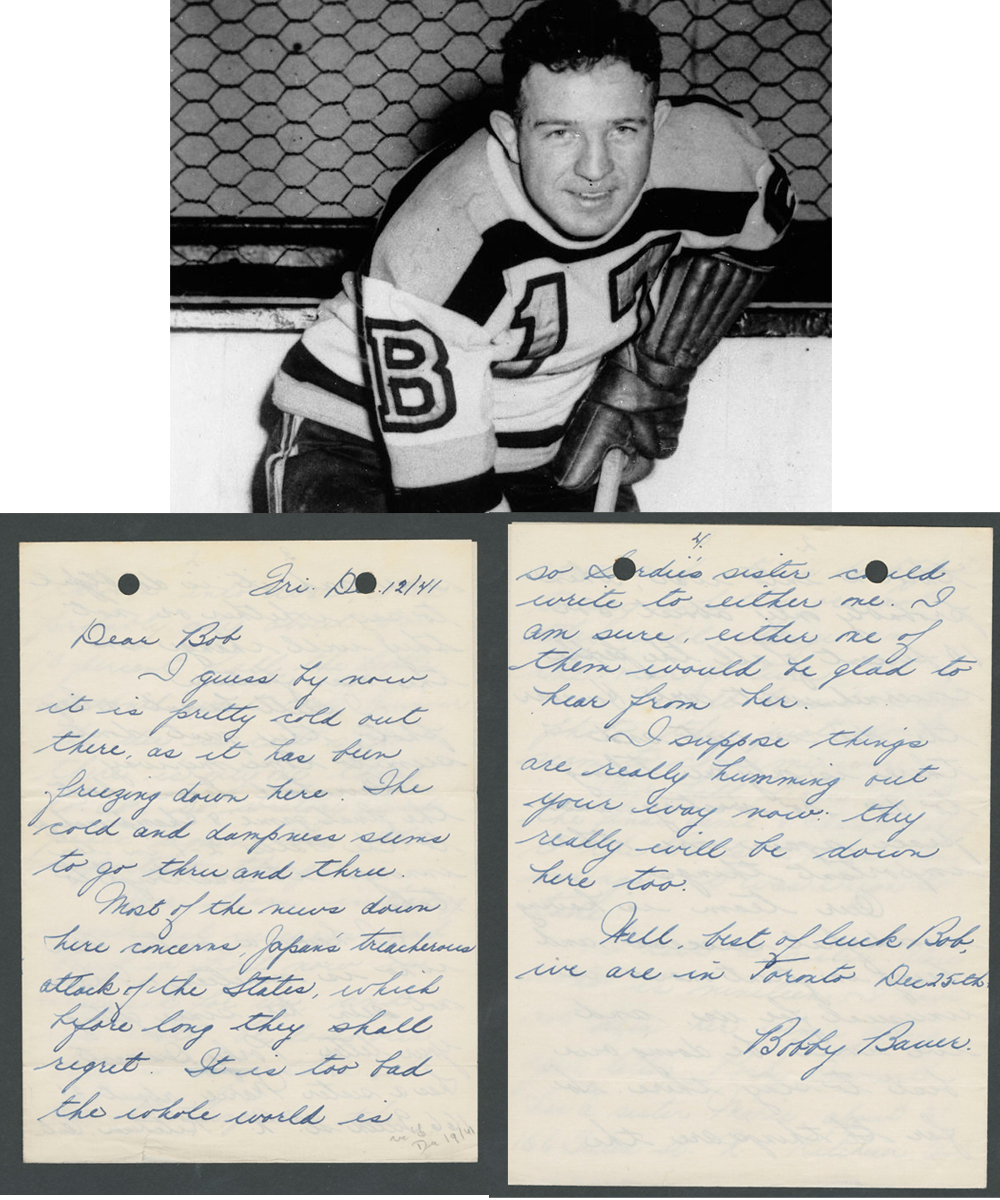 B
17
Fri. Dec. 12/41
Dear Bob
I guess by now
it is pretty cold out
there, as it has been
freezing down here. The
cold and dampness seems
to go thru and thru.
Most of the news down
here concerns, Japan's treacherous
attack of the States, which
before long they shall
regret. It is too bad
the whole world is
Dec 19/41
4.
so Gordie's sister could
write to either one. I
am sure, either one of
them would be glad to
hear from her.
I suppose things
are really humming out
your way now. they
really will be down
here too.
Well, best of luck Bob,
we are in Toronto Dec 25th.
Bobby Bauer.